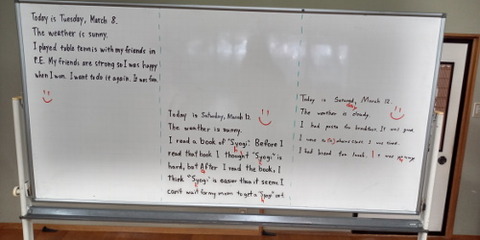 Today is Tuesday, March 8.
The weather is sunny.
I played table tennis with my friends in
P.E. My friends are strong so I was happy
when I won. I want to do it again. It was fun.
Today is Saturday, March 12.
The weather is sunny.
I read a book of "Syogi". Before I
read that book I thought "Syogi" is
hard, but After I read the book, I
think "Syogi" is easier than it seem. I
can't wait for my mom to get a "Syogi" set.
Today is March 12.
The weather is cloudy.
I had pasta for breakfast. It was good.
I was
I had bread for lunch. I was